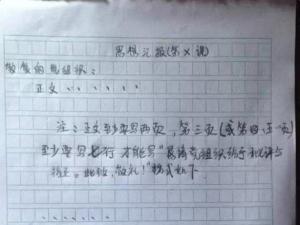 思想汇报(第X课)
敬爱的党组织：
正文......
注：正文至少要写两页，第三页(或第四、五页)
至少要写七行才能写“恳请党组织给予批评与
指正。此致，敬礼！”格式如下
......